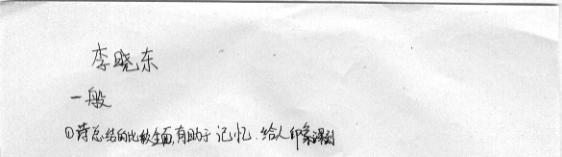 李晓东
一般
①诗总结的比较全面,有助于记忆.给人印象深刻